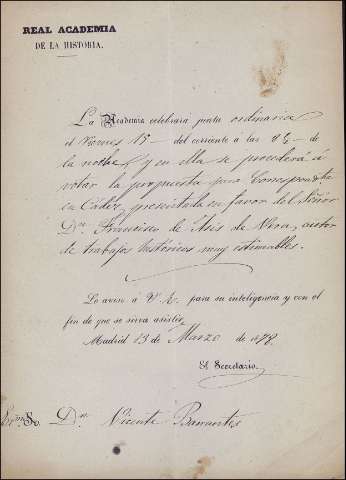 REAL ACADEMIA
DE LA HISTORIA.
La Academia celebrará junta ordinaria
el Viernes 15 del corriente á las 8½ de
la noche, y en ella se procederá á
votar la propuesta para Correspondte
en Cádiz, presentada en favor del Señor
Dn. Francisco de Asis de Vera, autor
de trabajos históricos muy estimables.
Lo aviso á V. E. para su inteligencia y con el
fin de que se sirva asistir.
Madrid 13 de Marzo de 1878.
El Secretario,
Excmo. Sr. Dn. Vicente Barrantes